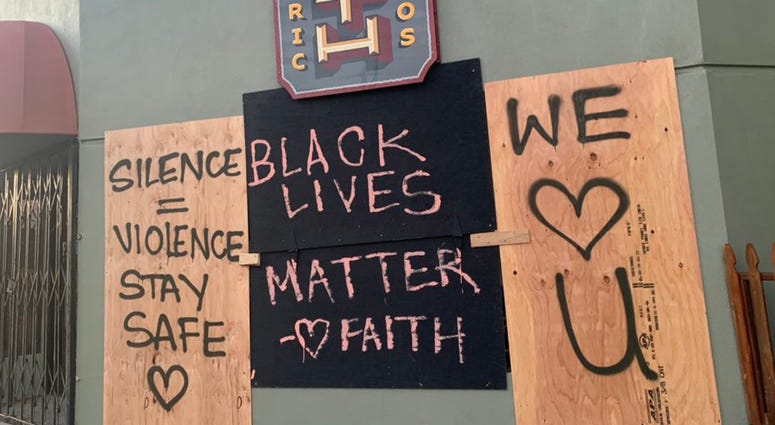 RIC
OS
TH
SILENCE
=
VIOLENCE
STAY
SAFE
♡
BLACK
LIVES
MATTER
-♡FAITH
WE
♡
U
APA